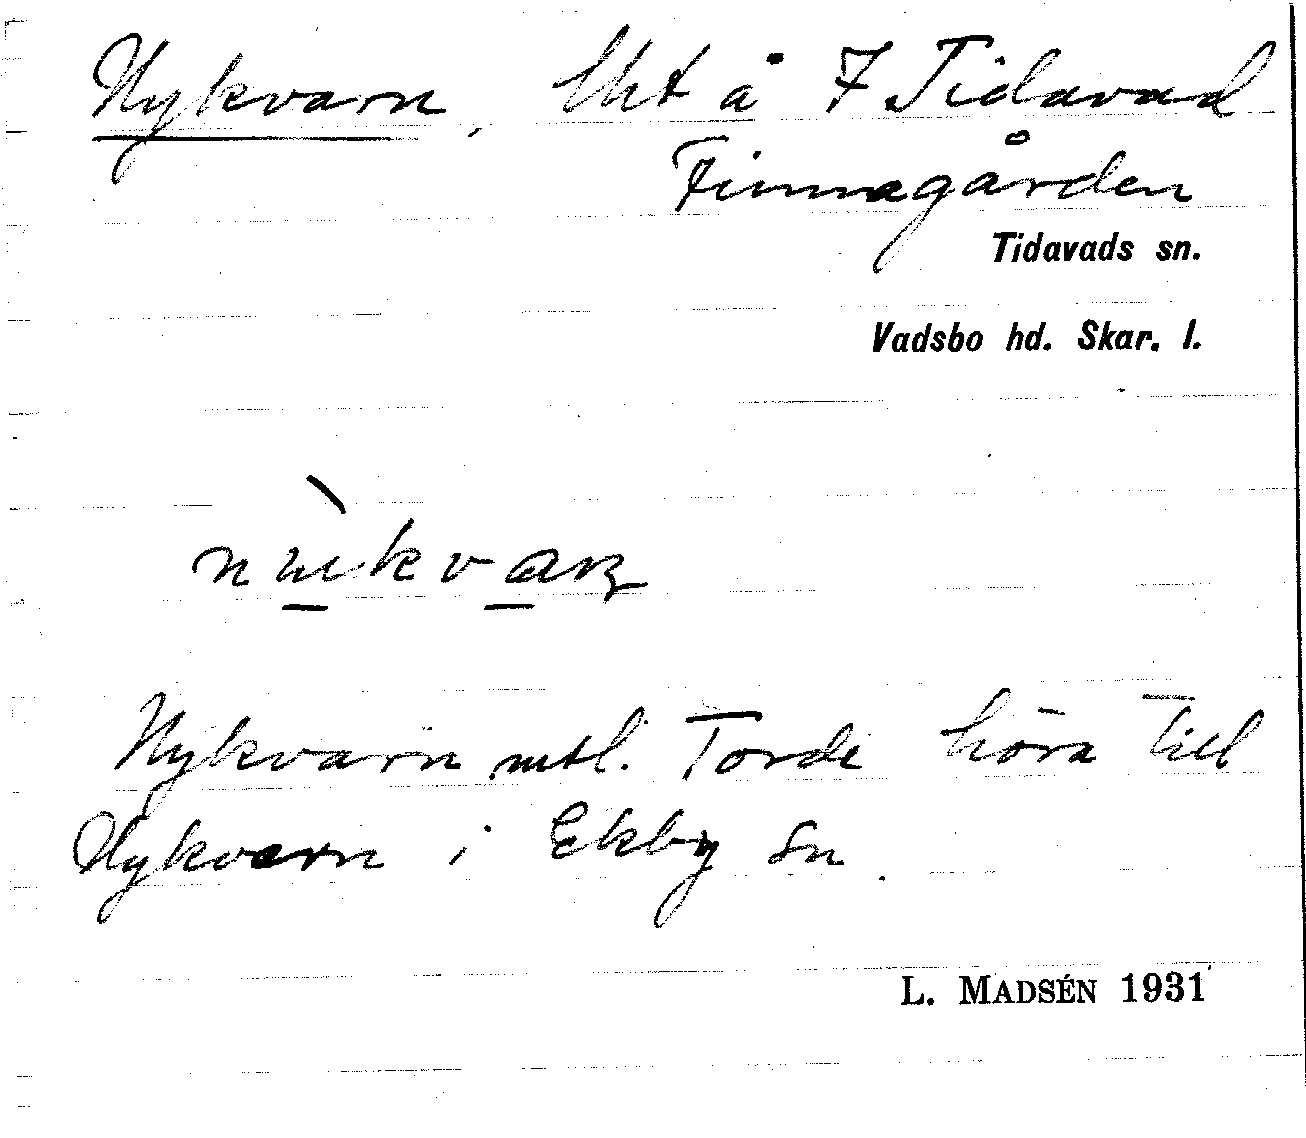 Nykvarn, lht å 7 Tidavad
Finnagården
Tidavads sn.
Vadsbo hd. Skar. l.
Nykvarn mtl. Torde höra till
Nykvarn i Ekby sn.
L. MADSÉN 1931